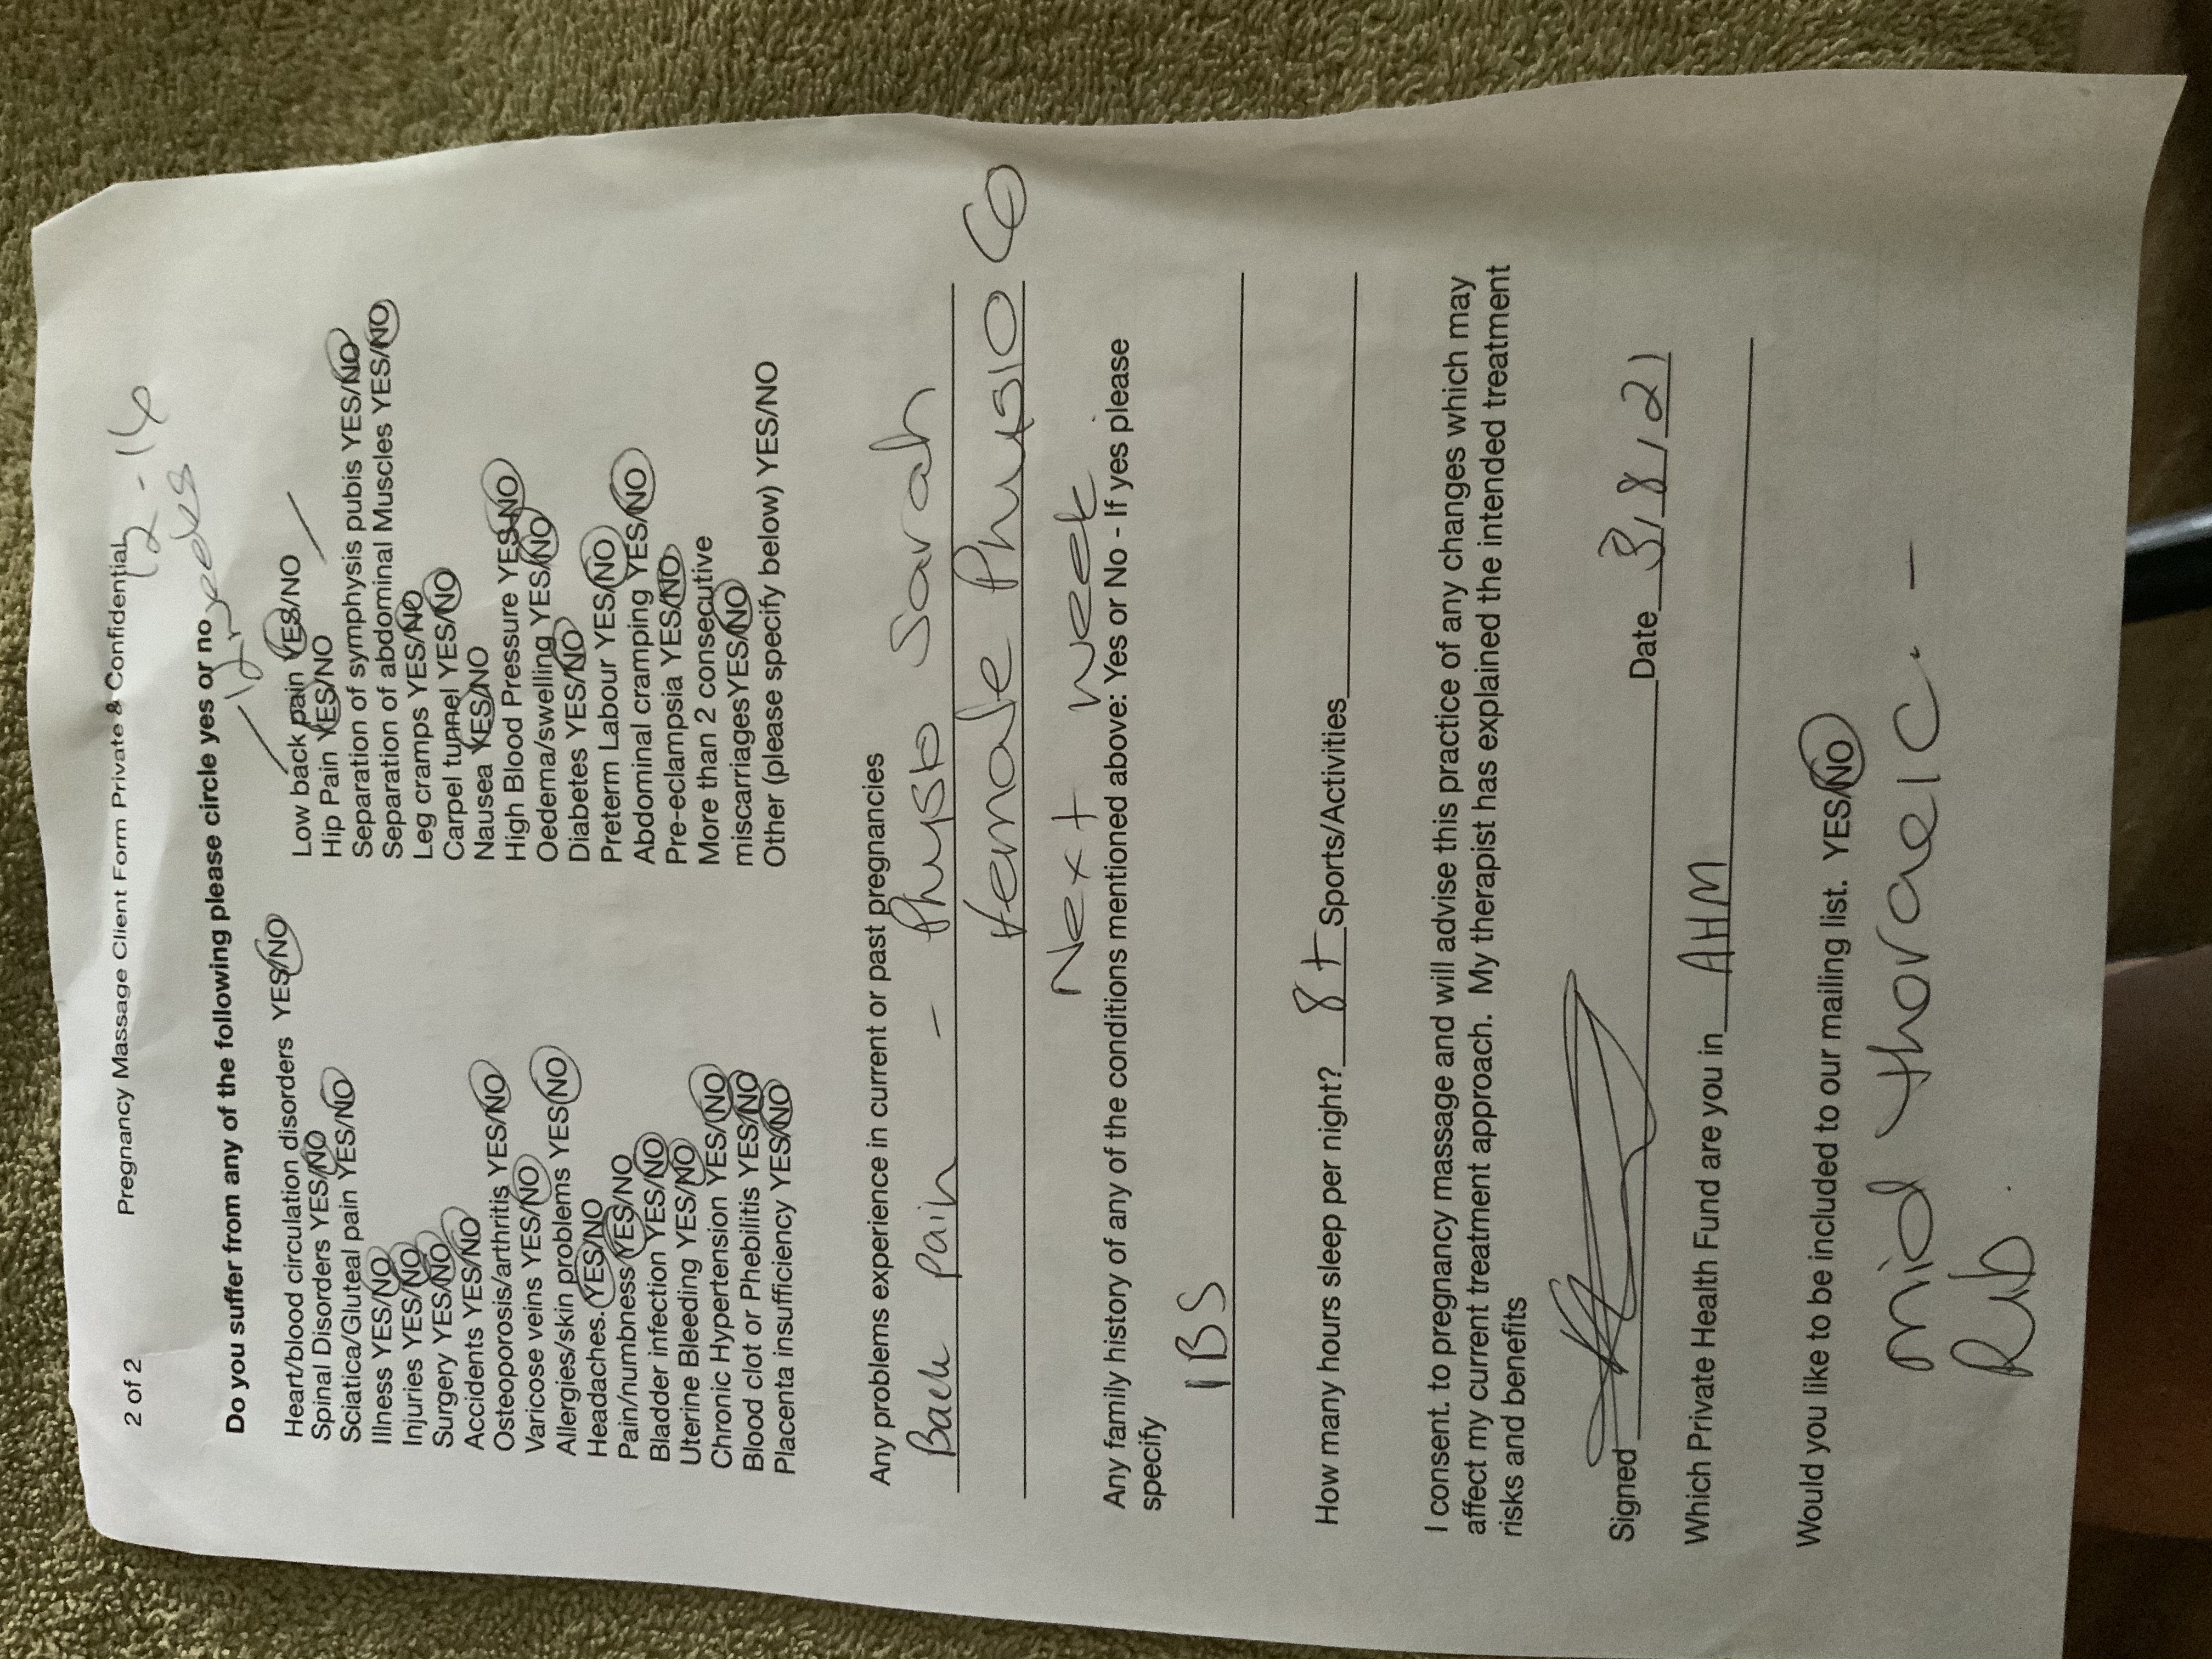 2 of 2
Pregnancy Massage Client Form Private & Confidential
12 - 14
Do you suffer from any of the following please circle yes or no
Heart/blood circulation disorders YES/NO
Spinal Disorders YES/NO
Sciatica/Gluteal pain YES/NO
Illness YES/NO
Injuries YES/NO
Surgery YES/NO
Accidents YES/NO
Osteoporosis/arthritis YES/NO
Varicose veins YES/NO
Allergies/skin problems YES/NO
Headaches. YES/NO
Pain/numbness YES/NO
Bladder infection YES/NO
Uterine Bleeding YES/NO
Chronic Hypertension YES/NO
Blood clot or Phebilitis YES/NO
Placenta insufficiency YES/NO
Low back pain YES/NO
Hip Pain YES/NO
Separation of symphysis pubis YES/NO
Separation of abdominal Muscles YES/NO
Leg cramps YES/NO
Carpel tunnel YES/NO
Nausea YES/NO
High Blood Pressure YES/NO
Oedema/swelling YES/NO
Diabetes YES/NO
Preterm Labour YES/NO
Abdominal cramping YES/NO
Pre-eclampsia YES/NO
More than 2 consecutive
miscarriagesYES/NO
Other (please specify below) YES/NO
Any problems experience in current or past pregnancies
Back pain - Physio Sarah
Female Physio Co
Next week
Any family history of any of the conditions mentioned above: Yes or No - If yes please
specify
IBS
How many hours sleep per night? 8+ Sports/Activities
I consent. to pregnancy massage and will advise this practice of any changes which may
affect my current treatment approach. My therapist has explained the intended treatment
risks and benefits
Signed Date 3/8/21
Which Private Health Fund are you in AHM
Would you like to be included to our mailing list. YES/NO
mid thoraeic. -
Rib.